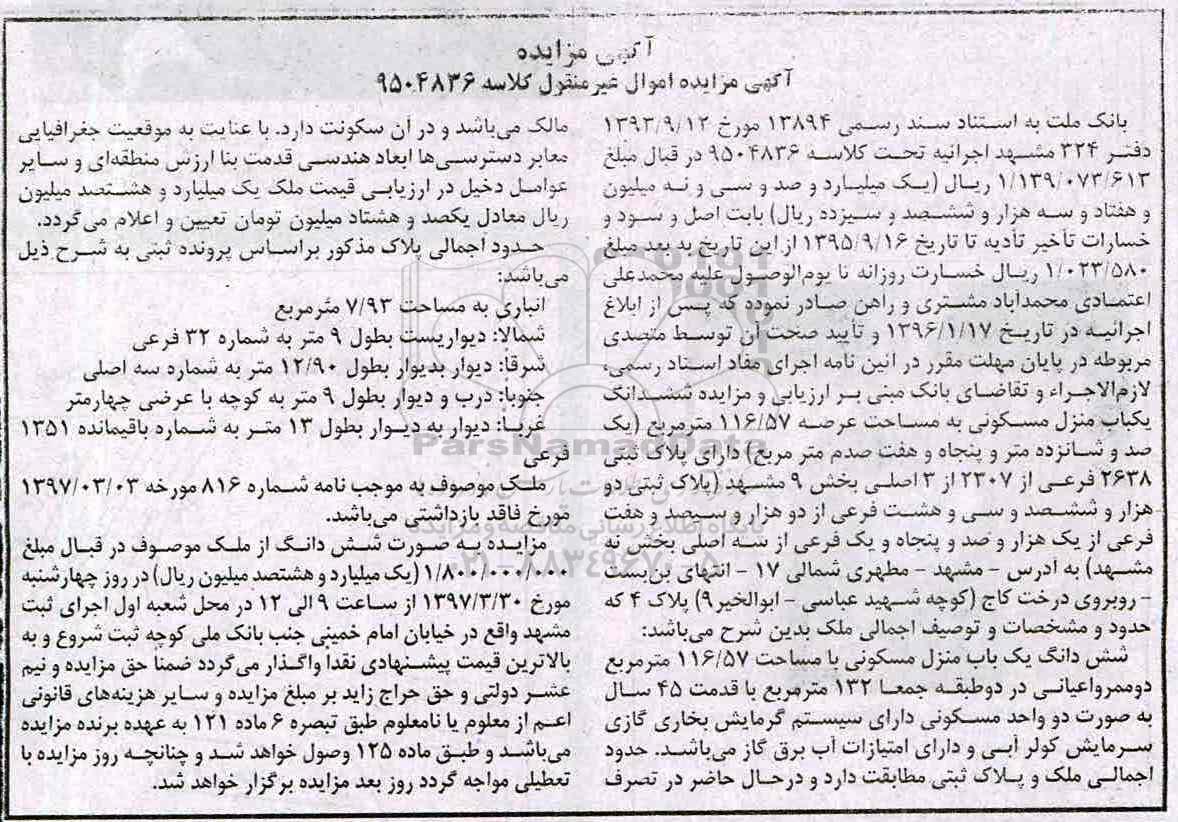 آگهی مزایده
آگهی مزایده اموال غیرمنقول کلاسه ۹۵۰۴۸۳۶
بانک ملت به استناد سند رسمی ۱۳۸۹۴ مورخ ۱۳۹۳/۹/۱۲
دفتر ۳۲۴ مشهد اجرائیه تحت کلاسه ۹۵۰۴۸۳۶ در قبال مبلغ
۱/۱۳۹/۰۷۳/۶۱۳ ریال (یک میلیارد و صد و سی و نه میلیون
و هفتاد و سه هزار و ششصد و سیزده ریال) بابت اصل و سود و
خسارات تأخیر تأدیه تا تاریخ ۱۳۹۵/۹/۱۶ از این تاریخ به بعد مبلغ
۱/۰۲۳/۵۸۰ ریال خسارت روزانه تا یوم‌الوصول علیه محمدعلی
اعتمادی محمدآباد مشتری و راهن صادر نموده که پس از ابلاغ
اجرائیه در تاریخ ۱۳۹۶/۱/۱۷ و تأیید صحت آن توسط متصدی
مربوطه در پایان مهلت مقرر در آئین نامه اجرای مفاد اسناد رسمی،
لازم‌الاجراء و تقاضای بانک مبنی بر ارزیابی و مزایده ششدانگ
یکباب منزل مسکونی به مساحت عرصه ۱۱۶/۵۷ مترمربع (یک
صد و شانزده متر و پنجاه و هفت صدم متر مربع) دارای پلاک ثبتی
۲۶۳۸ فرعی از ۲۳۰۷ از ۳ اصلی بخش ۹ مشهد (پلاک ثبتی دو
هزار و ششصد و سی و هشت فرعی از دو هزار و سیصد و هفت
فرعی از یک هزار و صد و پنجاه و یک فرعی از سه اصلی بخش نه
مشهد) به آدرس - مشهد - مطهری شمالی ۱۷ - انتهای بن‌بست
- روبروی درخت کاج (کوچه شهید عباسی - ابوالخیر۹) پلاک ۴ که
حدود و مشخصات و توصیف اجمالی ملک بدین شرح می‌باشد:
شش دانگ یک باب منزل مسکونی با مساحت ۱۱۶/۵۷ مترمربع
دوممرواعیانی در دوطبقه جمعا ۱۳۲ مترمربع با قدمت ۴۵ سال
به صورت دو واحد مسکونی دارای سیستم گرمایش بخاری گازی
سرمایش کولر آبی و دارای امتیازات آب برق گاز می‌باشد. حدود
اجمالی ملک و پلاک ثبتی مطابقت دارد و درحال حاضر در تصرف
مالک می‌باشد و در آن سکونت دارد. با عنایت به موقعیت جغرافیایی
معابر دسترسی‌ها ابعاد هندسی قدمت بنا ارزش منطقه‌ای و سایر
عوامل دخیل در ارزیابی قیمت ملک یک میلیارد و هشتصد میلیون
ریال معادل یکصد و هشتاد میلیون تومان تعیین و اعلام می‌گردد.
حدود اجمالی پلاک مذکور براساس پرونده ثبتی به شرح ذیل
می‌باشد:
انباری به مساحت ۷/۹۳ مترمربع
شمالا: دیواریست بطول ۹ متر به شماره ۳۲ فرعی
شرقا: دیوار بدیوار بطول ۱۲/۹۰ متر به شماره سه اصلی
جنوبا: درب و دیوار بطول ۹ متر به کوچه با عرضی چهارمتر
غربا: دیوار به دیوار بطول ۱۳ متر به شماره باقیمانده ۱۳۵۱
فرعی
ملک موصوف به موجب نامه شماره ۸۱۶ مورخه ۱۳۹۷/۰۳/۰۳
مورخ فاقد بازداشتی می‌باشد.
مزایده به صورت شش دانگ از ملک موصوف در قبال مبلغ
۱/۸۰۰/۰۰۰/۰۰۰ (یک میلیارد و هشتصد میلیون ریال) در روز چهارشنبه
مورخ ۱۳۹۷/۳/۳۰ از ساعت ۹ الی ۱۲ در محل شعبه اول اجرای ثبت
مشهد واقع در خیابان امام خمینی جنب بانک ملی کوچه ثبت شروع و به
بالاترین قیمت پیشنهادی نقدا واگذار می‌گردد ضمنا حق مزایده و نیم
عشر دولتی و حق حراج زاید بر مبلغ مزایده و سایر هزینه‌های قانونی
اعم از معلوم یا نامعلوم طبق تبصره ۶ ماده ۱۲۱ به عهده برنده مزایده
می‌باشد و طبق ماده ۱۲۵ وصول خواهد شد و چنانچه روز مزایده با
تعطیلی مواجه گردد روز بعد مزایده برگزار خواهد شد.
ParsNamadData
پایگاه اطلاع رسانی مناقصه و مزایده
۰۲۱-۸۸۳۴۹۶۷۰-۵